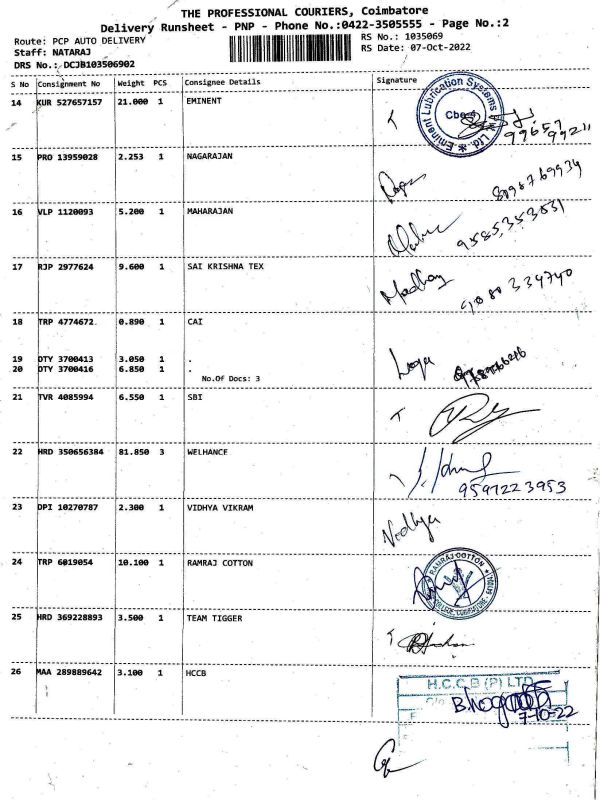 THE PROFESSIONAL COURIERS, Coimbatore
Delivery Runsheet - PNP - Phone No:0422-3505555 - Page No.:2
Route: PCP AUTO DELIVERY RS No.: 1035069
Staff: NATARAJ RS Date: 07-Oct-2022
DRS No.: DCJB103506902
S No Consignment No Weight PCS Consignee Details Signature
14 KUR 527657157 21.000 1 EMINENT
Eminent Lubrication Systems Ltd.
Cbe-4
99657
99211
15 PRO 13959028 2.253 1 NAGARAJAN
16 VLP 1120093 5.200 1 MAHARAJAN
17 RJP 2977624 9.600 1 SAI KRISHNA TEX
Madhay
9080 334740
18 TRP 4774672 0.890 1 CAI
19 OTY 3700413 3.050 1 .
20 OTY 3700416 6.850 1 .
No.Of Docs: 3
Loga
21 TVR 4085994 6.550 1 SBI
22 HRD 350656384 81.850 3 WELHANCE
9597223953
23 DPI 10270787 2.300 1 VIDHYA VIKRAM
Vidhya
24 TRP 6019054 10.100 1 RAMRAJ COTTON
RAMRAJ COTTON
25 HRD 369228893 3.500 1 TEAM TIGGER
26 MAA 289889642 3.100 1 HCCB
H.C.C.B (P) LTD
7-10-22